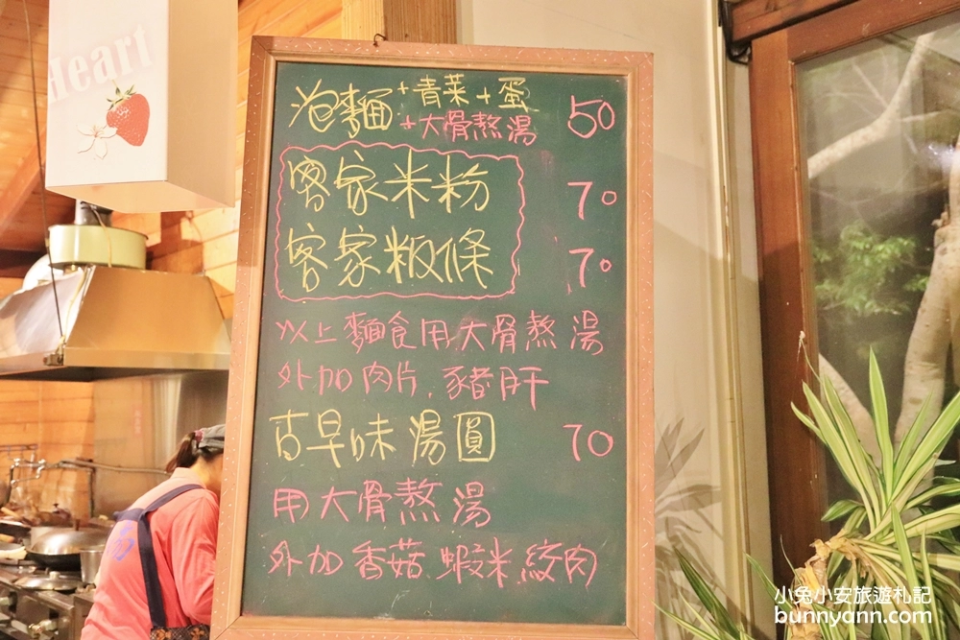 Heart
泡麵+青菜+蛋 50
+大骨熬湯
客家米粉 70
客家粄條 70
以上麵食用大骨熬湯
外加肉片.豬肝
古早味湯圓 70
用大骨熬湯
外加香菇.蝦米.絞肉
小兔小安旅遊札記
bunnyann.com